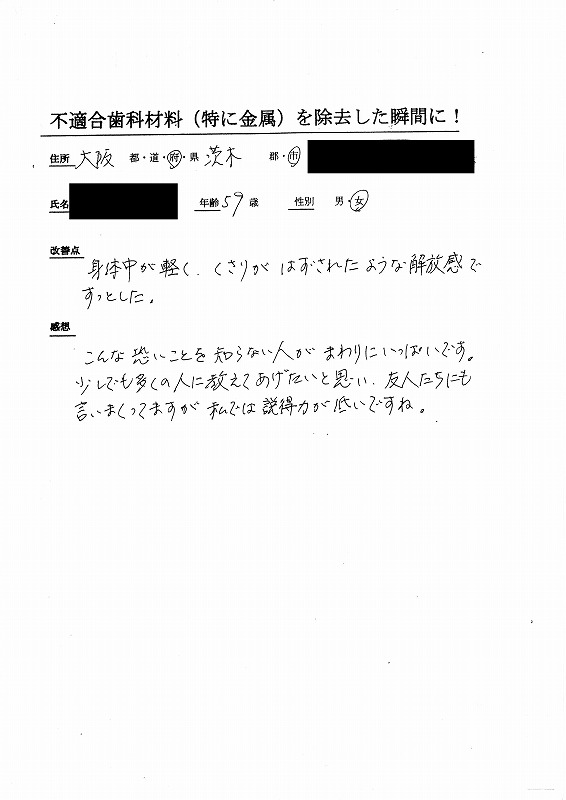 不適合歯科材料（特に金属）を除去した瞬間に！
住所 大阪 都・道・府・県 茨木 郡・市
氏名 年齢 59 歳 性別 男・女
改善点
身体中が軽く、くさりがはずされたような解放感で
すっとした。
感想
こんな恐いことを知らない人がまわりにいっぱいです。
少しでも多くの人に教えてあげたいと思い、友人たちにも
言いまくってますが私では説得力が低いですね。